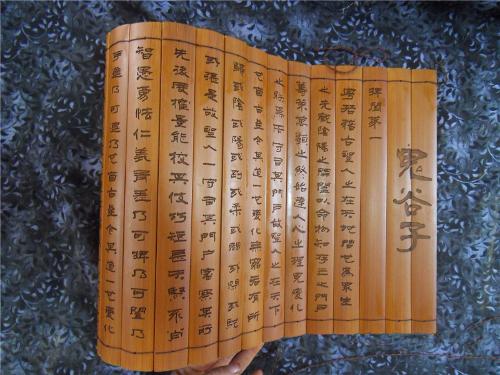 鬼谷子
捭闔第一
粵若稽古聖人之在天地間也為眾生
之先觀陰陽之開闔以命物知存亡之門戶
籌策萬類之終始達人心之理見變化
之眹焉而守司其門戶故聖人之在天下
也自古至今其道一也變化無窮各有所
歸或陰或陽或柔或剛或開或閉或弛
或張是故聖人一守司其門戶審察其所
先後度權量能校其伎巧短長夫賢不肖
智愚勇怯仁義有差乃可捭乃可闔乃
乃可進乃也自古至今其道一也變化